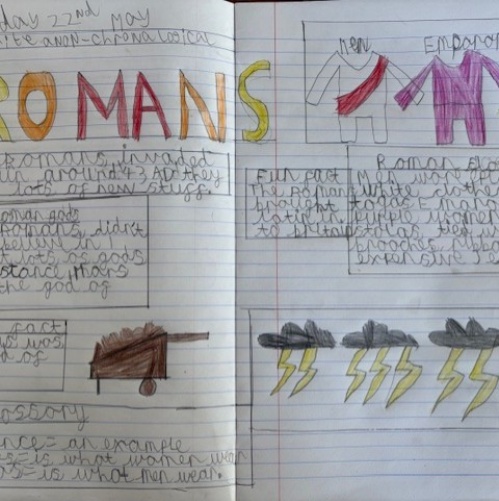 day 22nd May
ite a non-chronological
ROMANS
Romans invaded
in around 43 AD they
lots of new stuff.
oman gods
romans didn't
believe in 1
t lots so gods
stance, Mars
the god of
fact
s was
d of
ossary
ence = an example
as = is what women wear
as = is what men wear.
Men
Emparor
Fun fact
The Romans
brought
latin
to britain
Roman
Men wore
white clothe
togas Empar
purple women
stolas tied w
brooches ribbo
expensive je